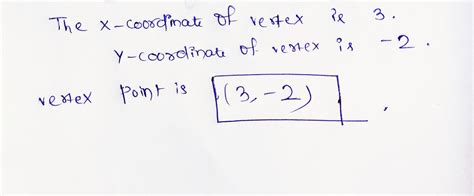 The x-coordinate of vertex is 3.
Y-coordinate of vertex is -2.
vertex point is (3,-2).